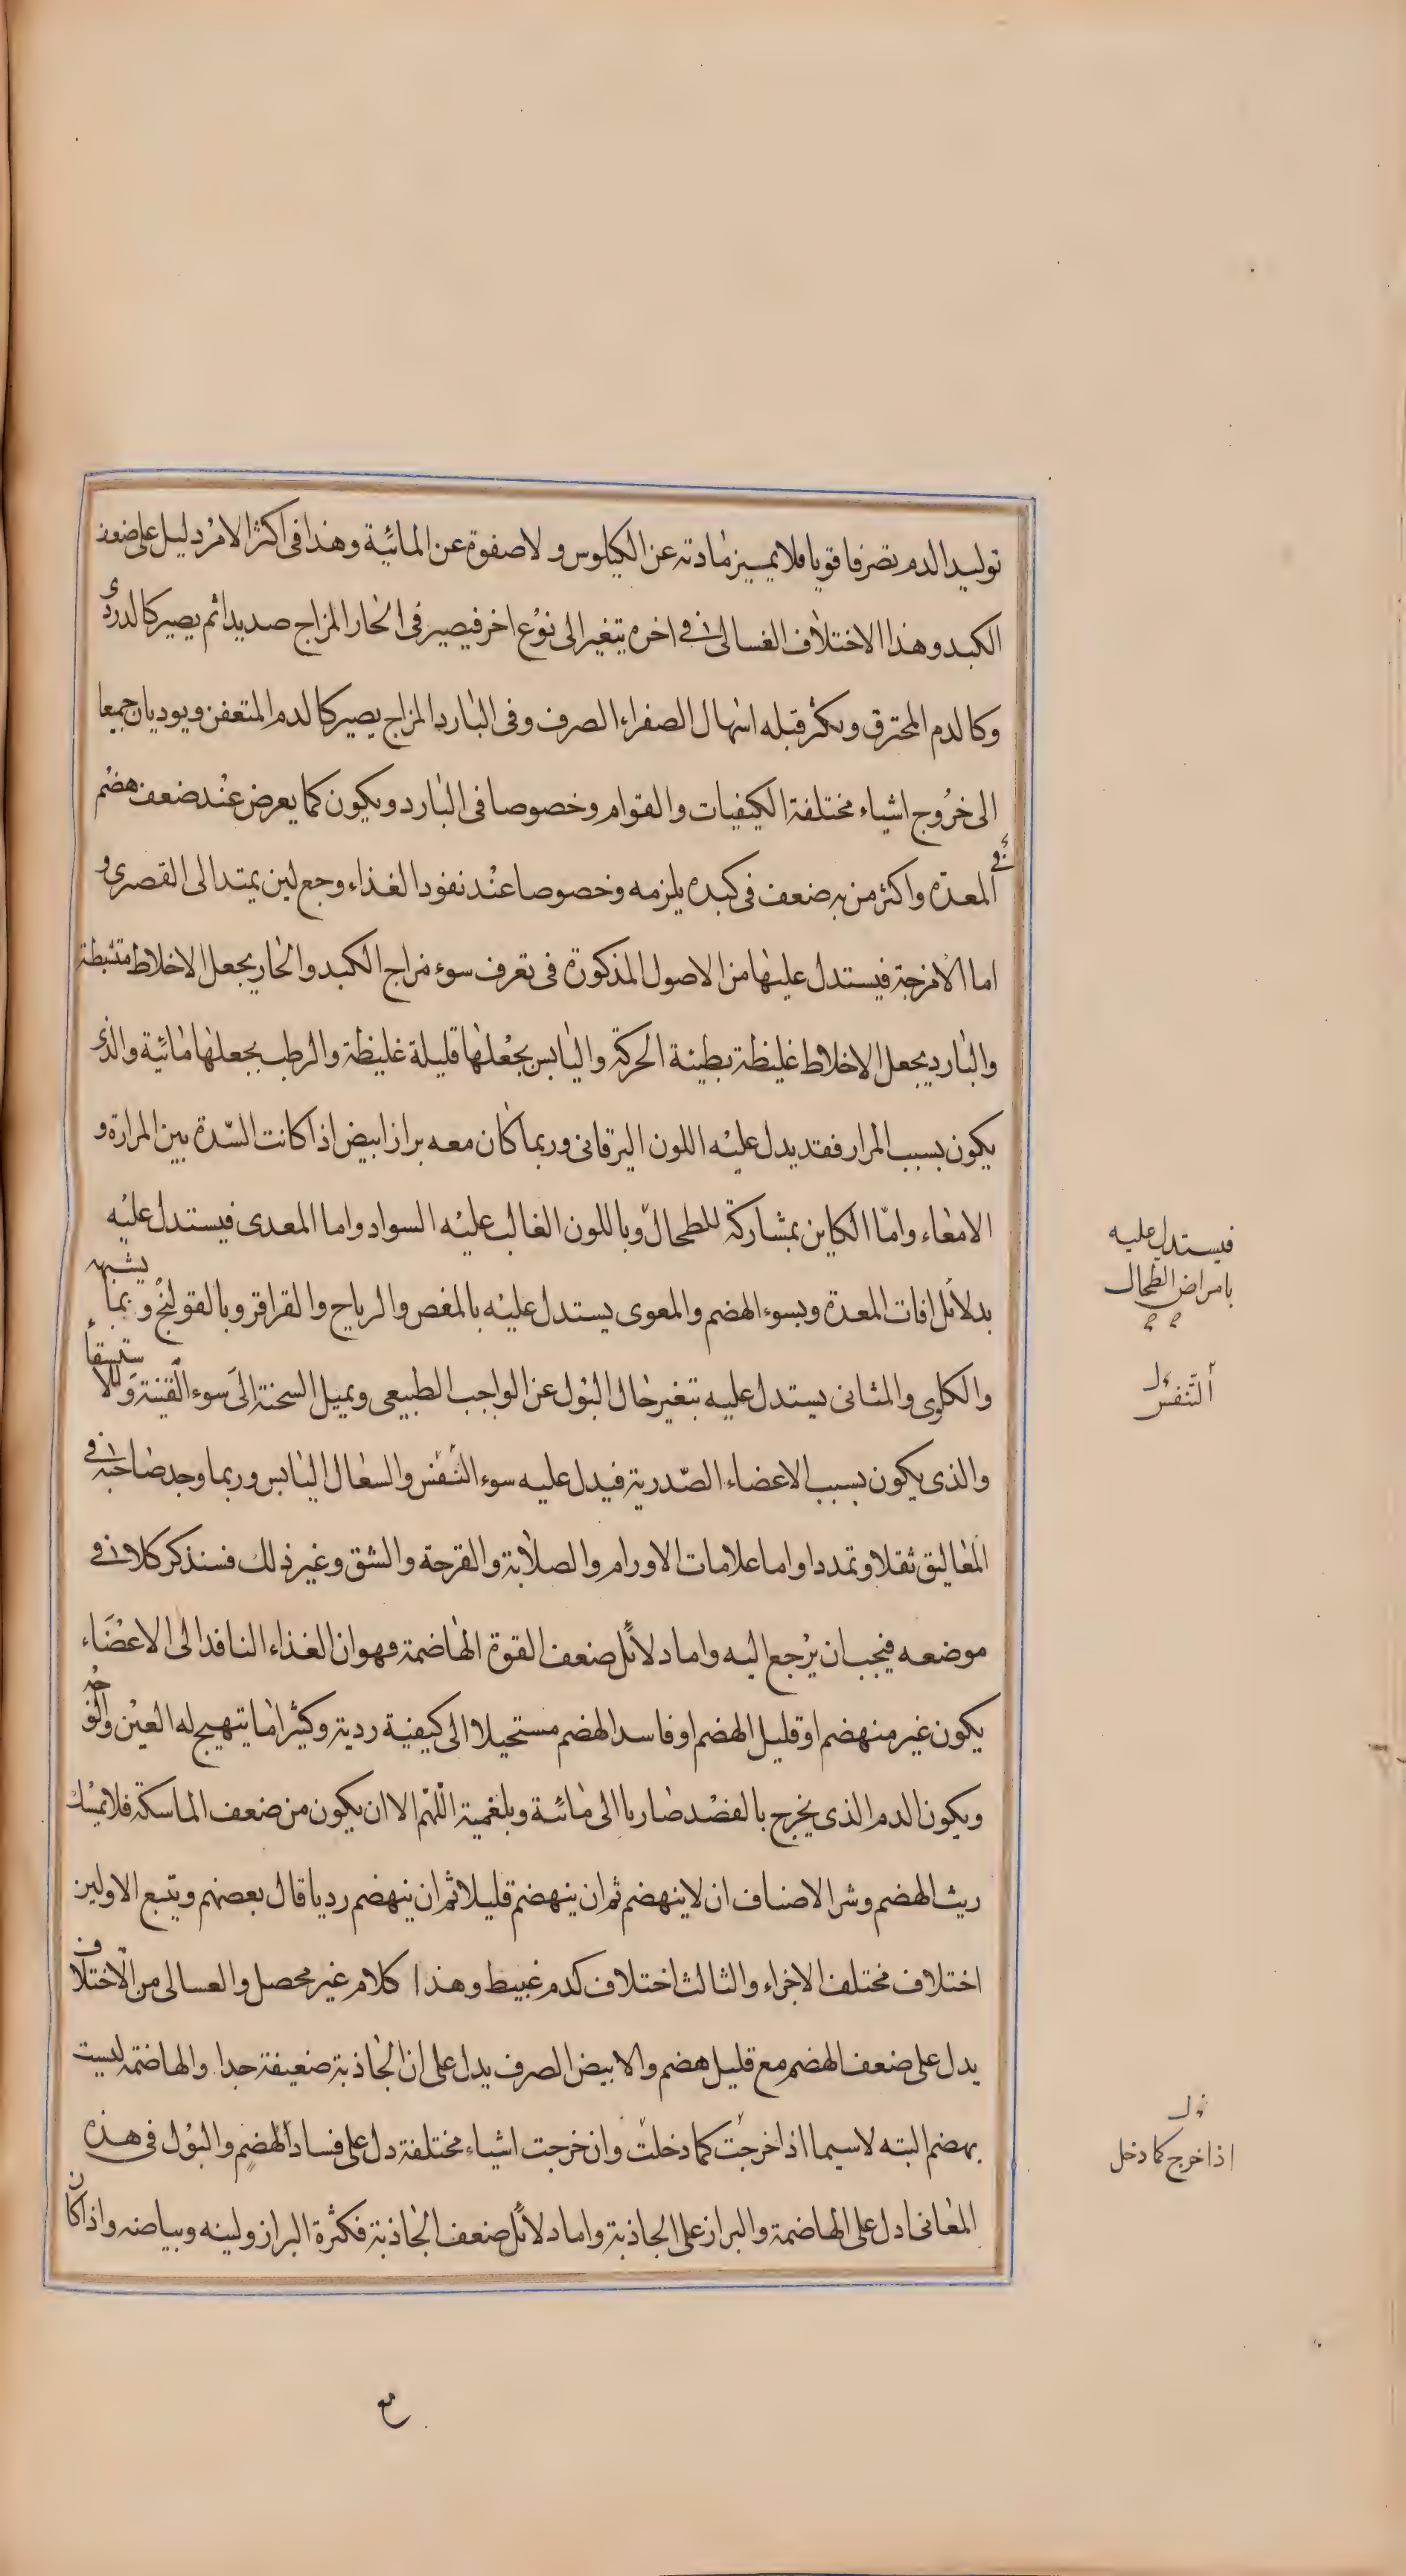 توليد الدم تصرفا قويا فلا يميز مادته عن الكيلوس ولا صفوة عن المائية وهذا فى اكثر الامر دليل على ضعف
الكبد وهذا الاختلاف الغسالى فى اخره يتغير الى نوع اخر فيصير فى الحار المزاج صديدا ثم يصير كالدردى
وكالدم المحترق ويكثر قبله اسهال الصفراء الصرف وفى البارد المزاج يصير كالدم المتعفن ويوديان جميعا
الى خروج اشياء مختلفة الكيفيات والقوام وخصوصا فى البارد ويكون كما يعرض عند ضعف هضم
المعدة واكثر من به ضعف فى كبده يلزمه وخصوصا عند نفود الغذاء وجع لين يمتد الى القصرى و
اما الامزجة فيستدل عليها من الاصول المذكورة فى تعرف سوء مزاج الكبد والحار يجعل الاخلاط متشيطة
والبارد يجعل الاخلاط غليظة بطيئة الحركة واليابس يجعلها قليلة غليظة والرطب يجعلها مائية والذى
يكون بسبب المرار فقد يدل عليه اللون اليرقانى وربما كان معه براز ابيض اذا كانت السدة بين المرارة و
الامعاء واما الكاين بمشاركة للطحال وباللون الغالب عليه السواد واما المعدى فيستدل عليه
فيستدل عليه
بامراض الطحال
بدلائل افات المعدة وبسوء الهضم والمعوى يستدل عليه بالمغص والرياح والقراقر وبالقولنج وبما يشبهه
والكلوى والمثانى يستدل عليه بتغير حال البول عن الواجب الطبيعى وبميل السحنة الى سوء القنية والاستسقاء
التنفس
والذى يكون بسبب الاعضاء الصدرية فيدل عليه سوء النفس والسعال اليابس وربما وجد صاحبه فى
المعاليق ثقلا وتمددا واما علامات الاورام والصلابة والقرحة والشق وغير ذلك فسنذكر كلا فى
موضعه فيجب ان يرجع اليه واما دلائل ضعف القوة الهاضمة فهو ان الغذاء النافد الى الاعضاء
يكون غير منهضم او قليل الهضم او فاسد الهضم مستحيلا الى كيفية ردية وكثيرا ما يتهيج له العين والوجه
ويكون الدم الذى يخرج بالفصد ضاربا الى مائية وبلغمية اللهم الا ان يكون من ضعف الماسكة فلا يمسك
ريث الهضم وشر الاصناف ان لا ينهضم ثم ان ينهضم قليلا ثم ان ينهضم رديا قال بعضهم ويتبع الاولين
اختلاف مختلف الاجزاء والثالث اختلاف كدم عبيط وهذا كلام غير محصل والغسالى من الاختلاف
يدل على ضعف الهضم مع قليل هضم والابيض الصرف يدل على ان الجاذبة ضعيفة جدا والهاضمة ليست
بهضم البته لاسيما اذا خرجت كما دخلت وان خرجت اشياء مختلفة دل على فساد الهضم والبول فى هذه
اذا خرج كما دخل
المعانى ادل على الهاضمة والبراز على الجاذبة واما دلائل ضعف الجاذبة فكثرة البراز ولينه وبياضه واذا كان